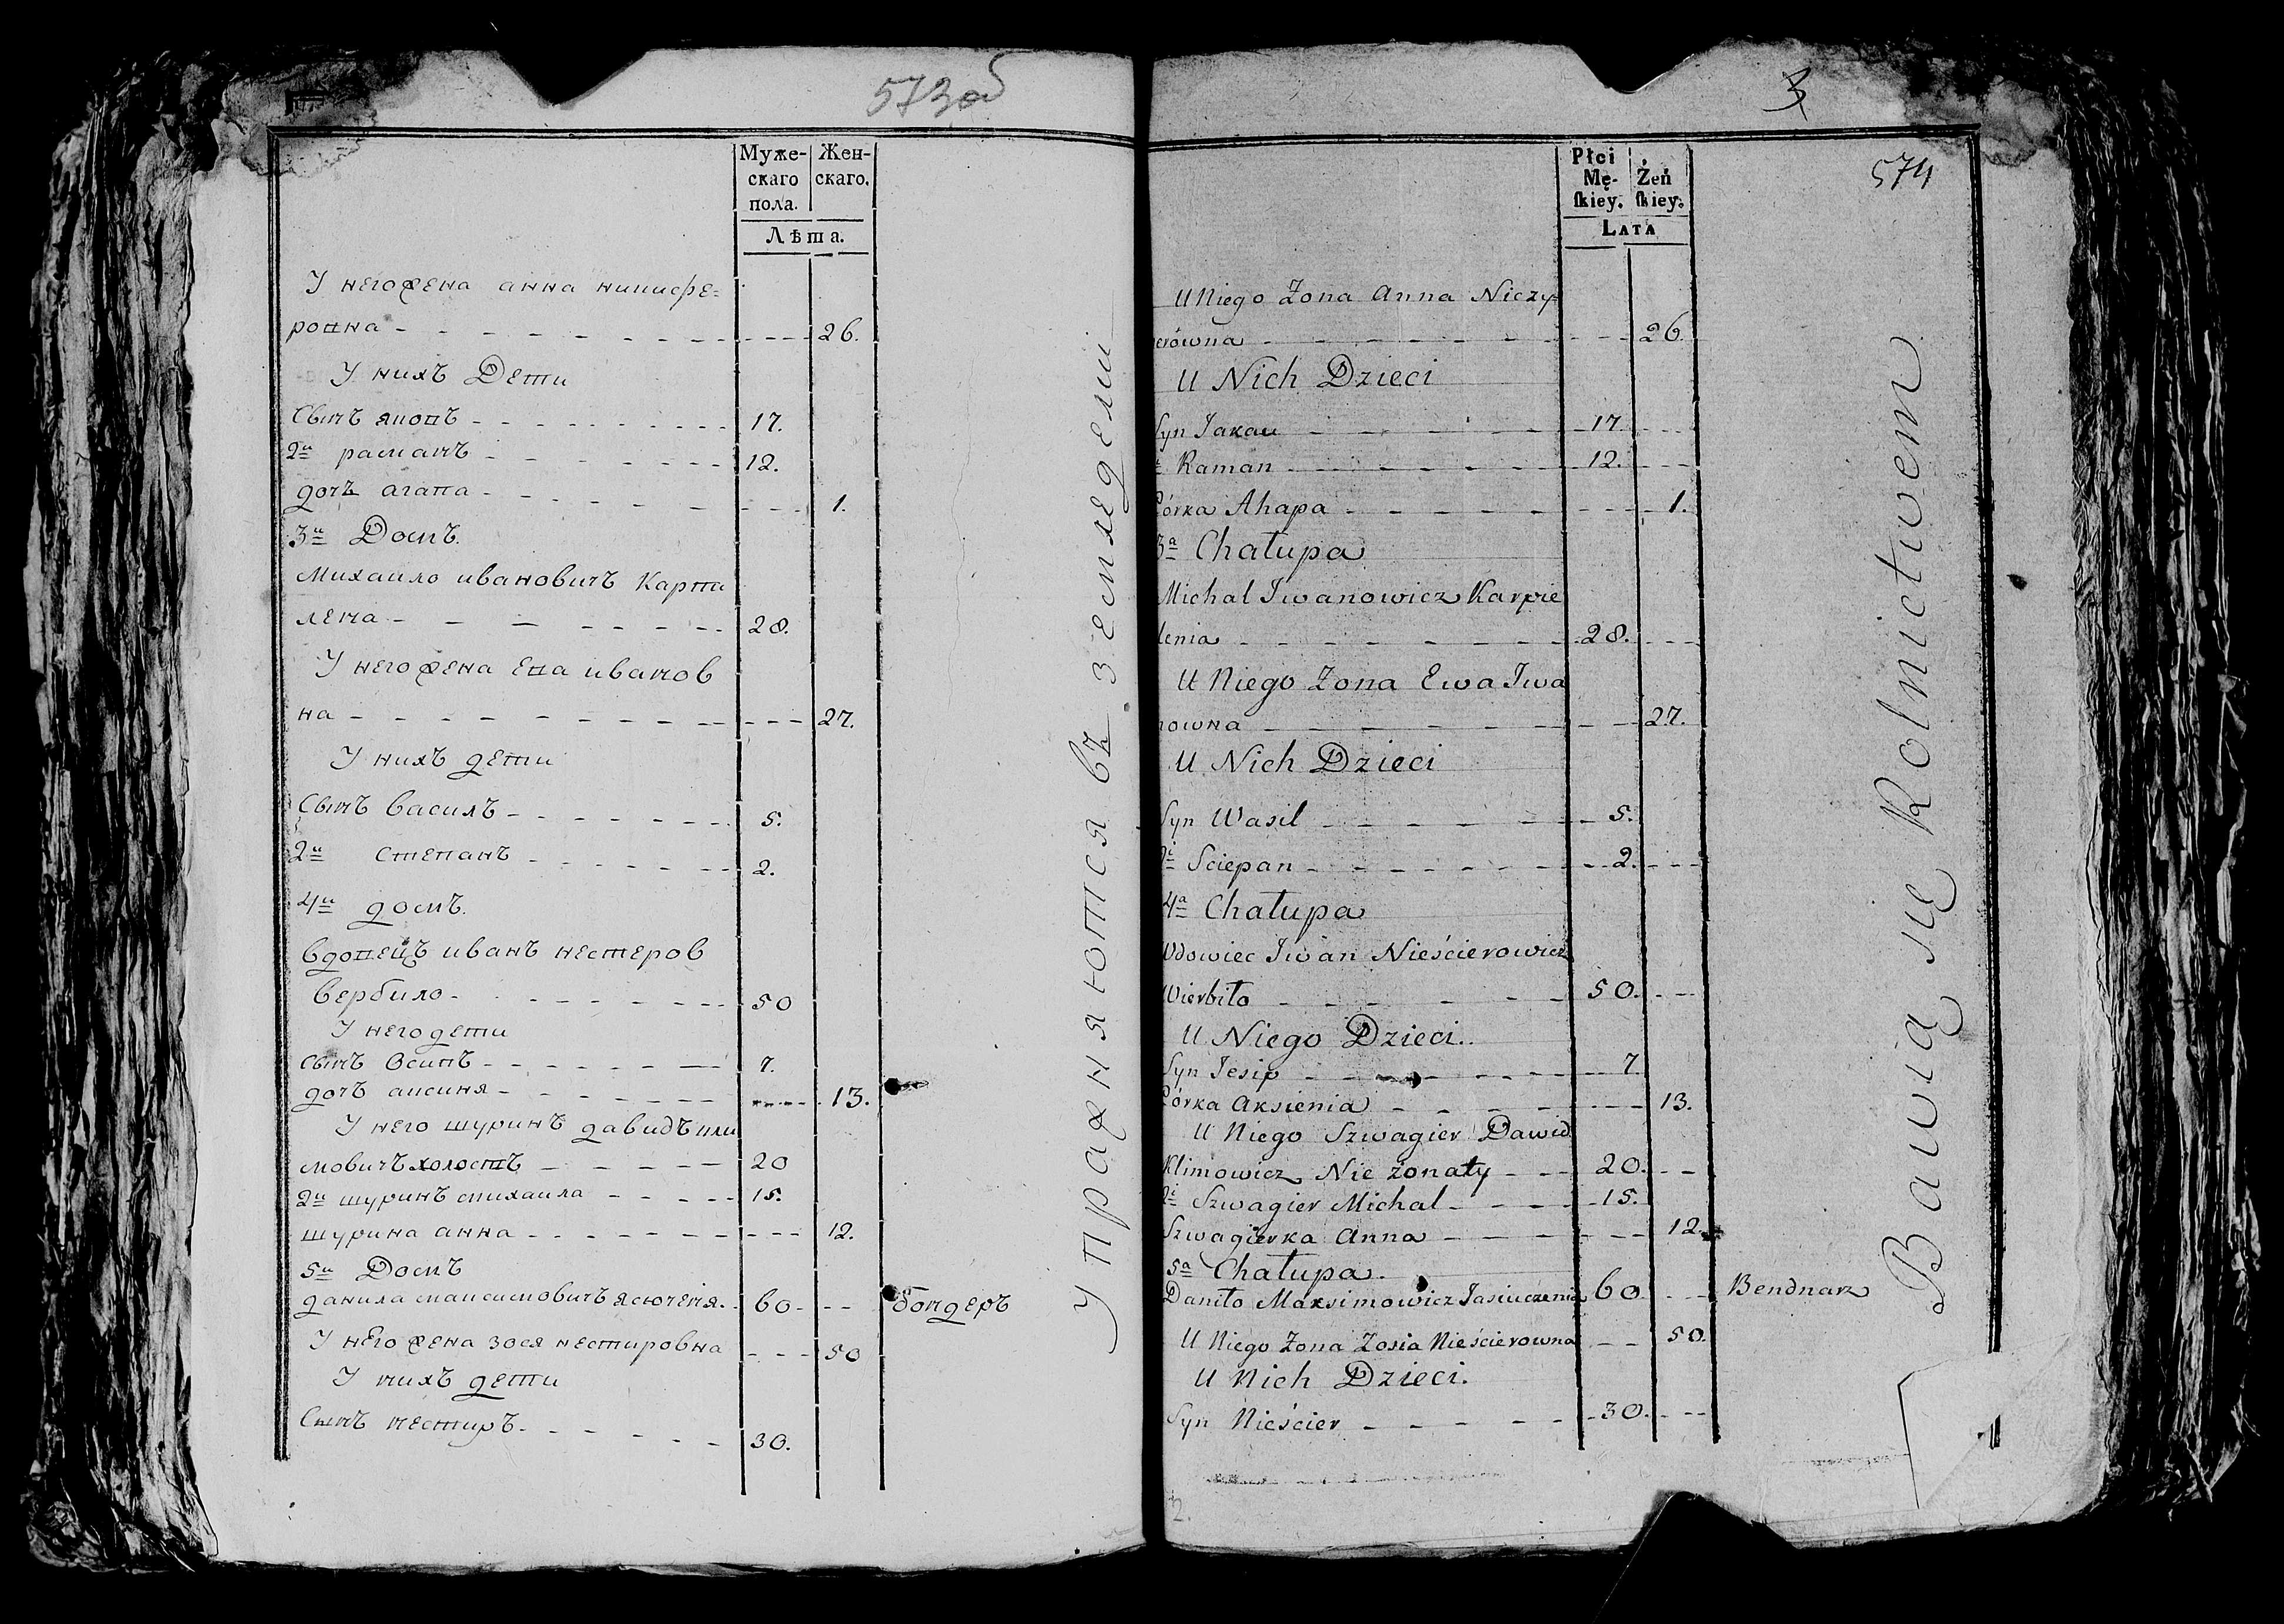 573об
Муже-
скаго
пола.
Жен-
скаго.
Лѣта.
У него жена анна никифе=
ровна 26.
У нихъ Дети
Сынъ яковъ 17.
2й раманъ 12.
дочъ агапа 1.
3й Домъ.
Михаило ивановичъ Карпи
леня 28.
У него жена Ева иванов
на 27.
У нихъ дети
Сынъ василъ 5.
2й степанъ 2.
4й домъ.
вдовецъ иванъ нестеров
вербило 50
У него дети
Сынъ Осипъ 7.
дочъ аксиня 13.
У него шуринъ давидъ кли
мовичъ холостъ 20
2й шуринъ михаила 15.
шурина анна 12.
5й Домъ
данила максимовичъ ясюченя. 60 бондеръ
У него жена зося нестировна 50
У нихъ дети
Сынъ нестиръ 30.
Упражняются въ земледелии
3
574
Płci
Mę-
skiey.
Żeń
skiey.
LATA
U Niego Żona Anna Niczyp
erówna 26.
U Nich Dzieci
Syn Jakau 17.
Raman 12.
Córka Ahapa 1.
3a Chałupa
Michał Iwanowicz Karpie
lenia 28.
U Niego Żona Ewa Iwa
nowna 27.
U Nich Dzieci
Syn Wasil 5.
2i Sciepan 2.
4a Chałupa
Wdowiec Iwan Nieścierowicz
Wierbiło 50.
U Niego Dzieci.
Syn Jesip 7.
Córka Aksienia 13.
U Niego Szwagier Dawid
Klimowicz Nie żonaty 20.
2i Szwagier Michał 15.
Szwagierka Anna 12.
5a Chałupa.
Daniło Maksimowicz Jasiuczenia 60 Bendnarz
U Niego Żona Zosia Nieścierowna 50.
U Nich Dzieci.
Syn Nieścier 30.
Bawią się Rolnictwem
2.